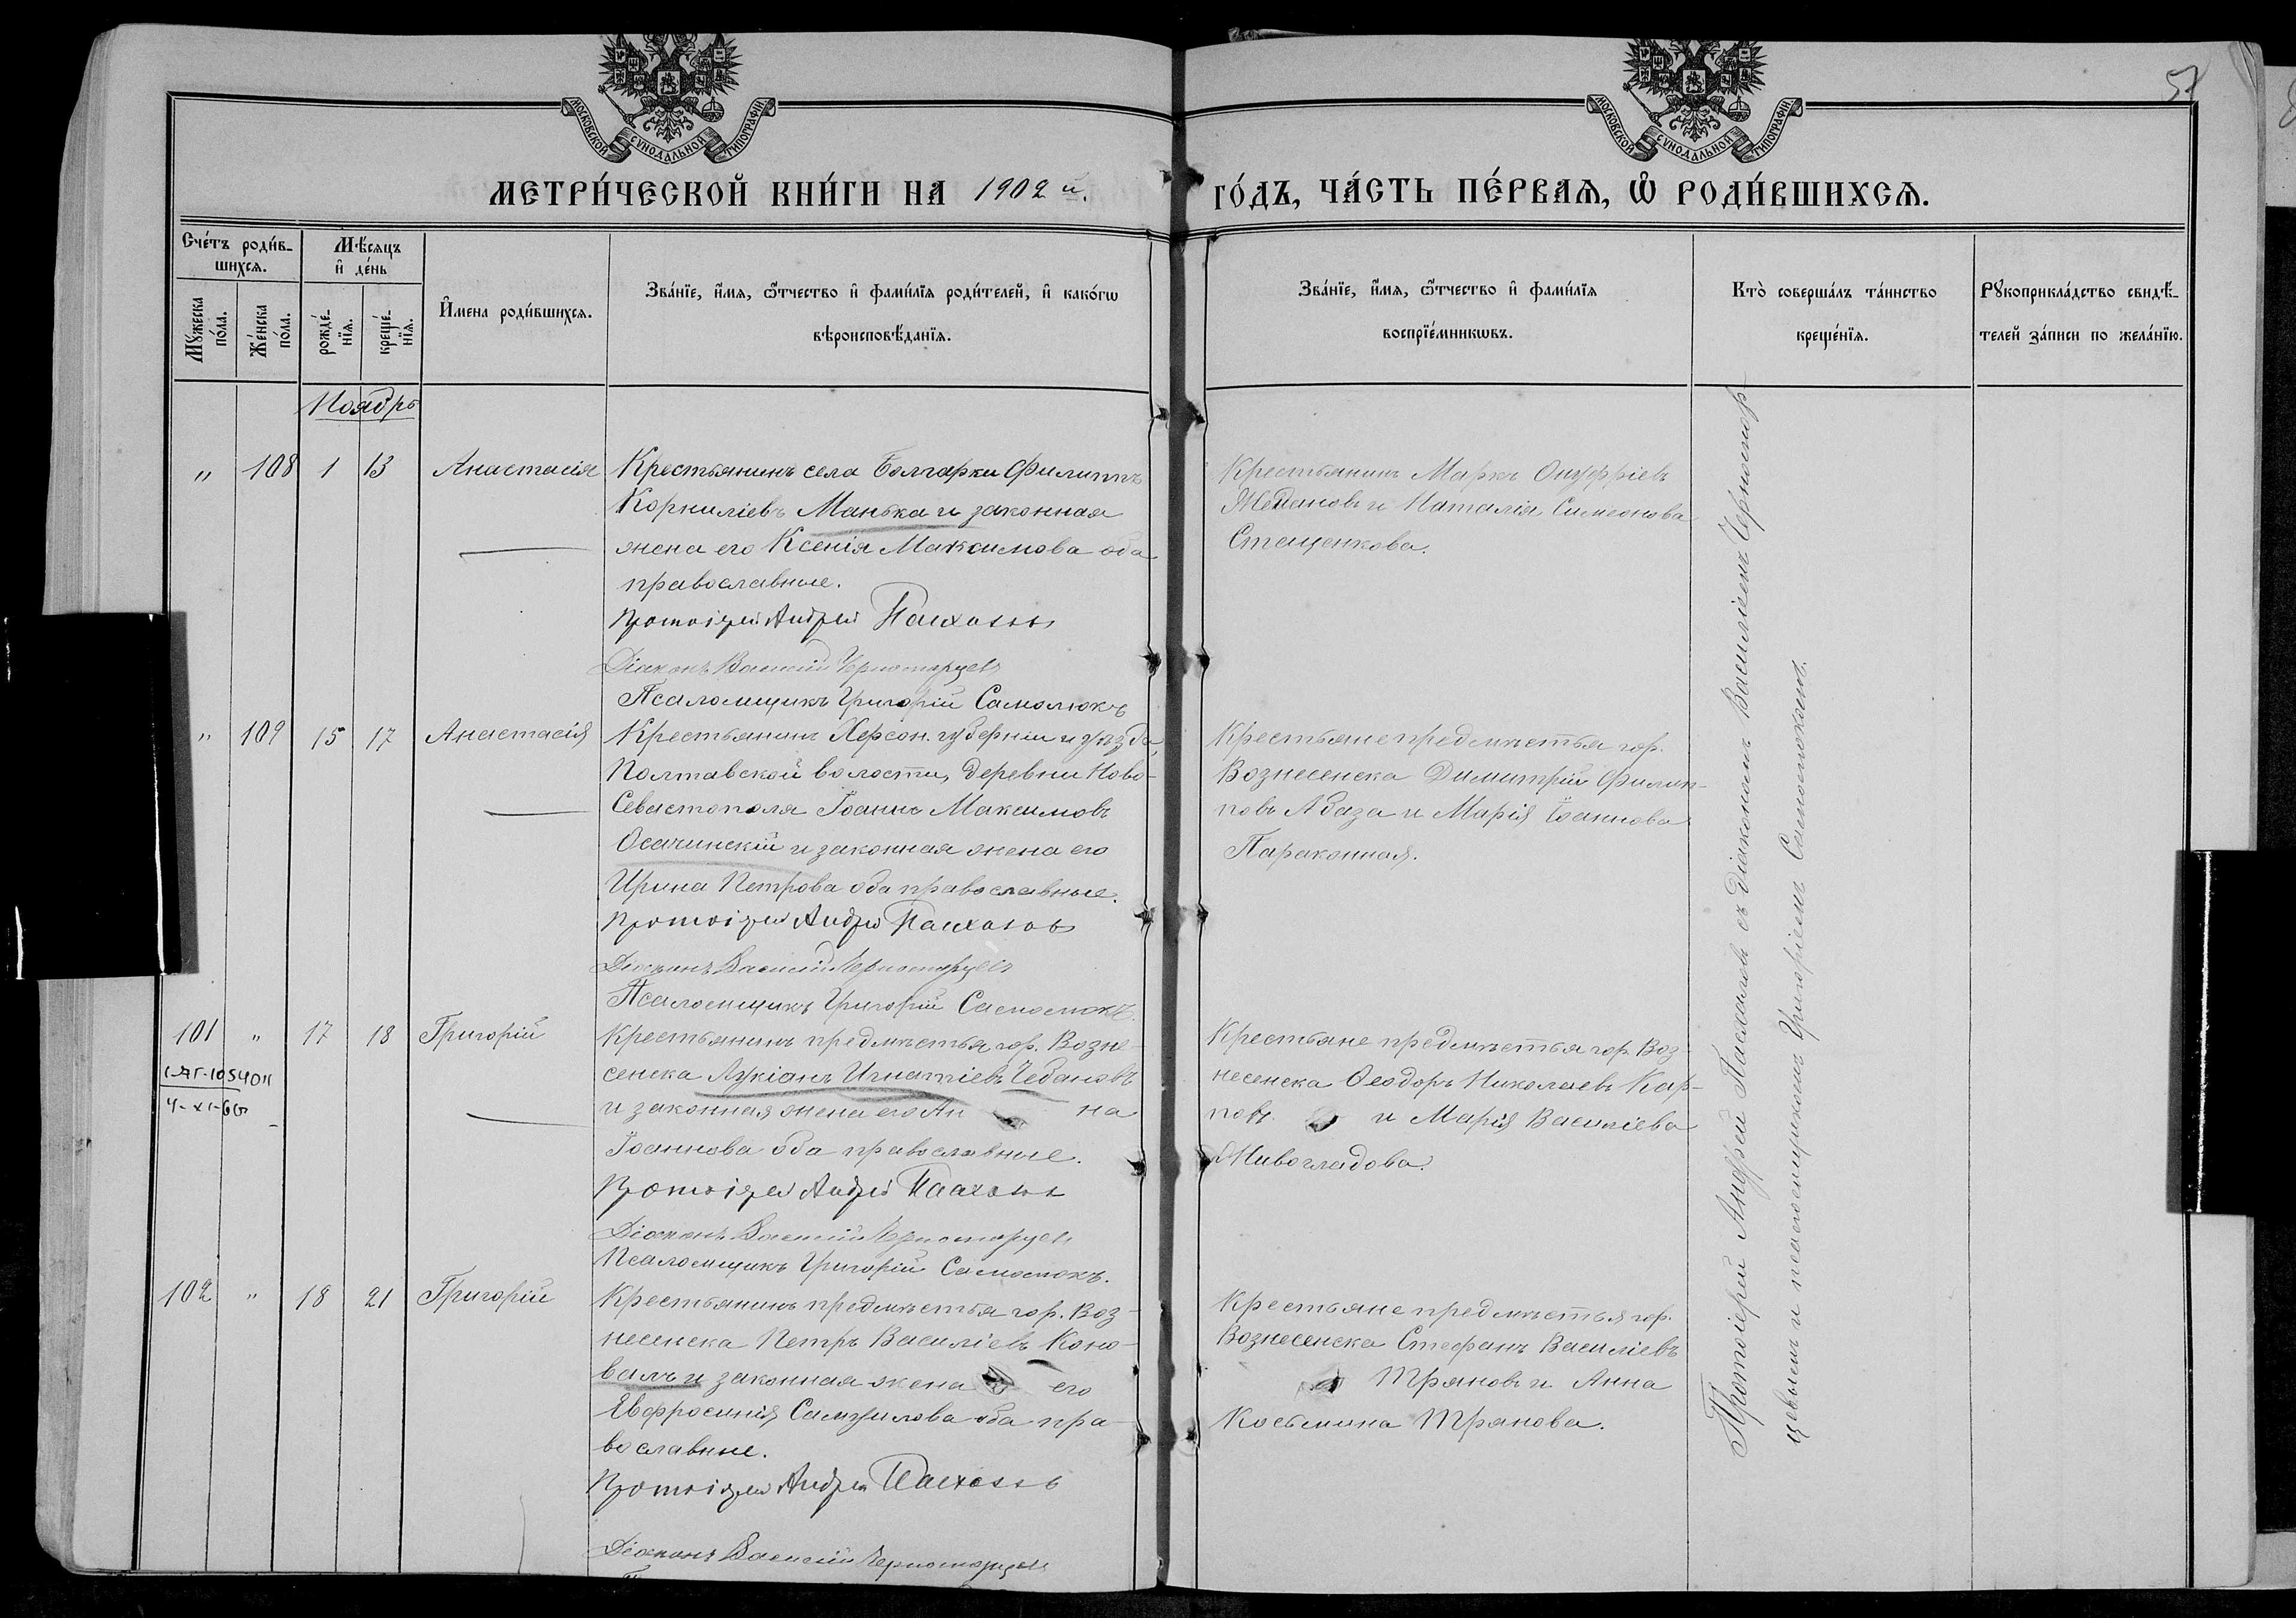 МОСКОВСКОЙ СѴНОДАЛЬНОЙ ТИПОГРАФІИ
МОСКОВСКОЙ СѴНОДАЛЬНОЙ ТИПОГРАФІИ
МЕТРИ́ЧЕСКОЙ КНИ́ГИ НА 1902 й.
ГО́ДЪ, ЧА́СТЬ ПЕ́РВАѦ, Ѡ҆ РОДИ́ВШИХСѦ.
Сче́тъ роди́в-
шихсѧ.
Мꙋ́жеска
по́ла.
Же́нска
по́ла.
Мѣ́сѧцъ
и҆ де́нь
рожде́-
нїѧ.
креще́-
нїѧ.
И҆́мена роди́вшихсѧ.
Зва́нїе, и҆́мѧ, ѻ҆́тчество и҆ фами́лїѧ роди́телей, и҆ како́гѡ
вѣроисповѣ́данїѧ.
Зва́нїе, и҆́мѧ, ѻ҆́тчество и҆ фами́лїѧ
воспрїе́мникѡвъ.
Кто̀ соверша́лъ та́инство
креще́нїѧ.
Рꙋкоприкла́дство свидѣ́-
телей за́писи по жела́нїю.
Ноябрь
„ 108 1 13 Анастасія
Крестьянинъ села Болгарки Филиппъ
Корниліевъ Манька и законная
жена его Ксенія Максимова оба
православные.
Протоіерей Андрей Пасхаловъ
Діаконъ Василій Черноморцевъ
Псаломщикъ Григорій Самолюкъ
Крестьянинъ Маркъ Онуфріевъ
Жедановъ и Наталія Симеонова
Стеценкова.
„ 109 15 17 Анастасія
Крестьянинъ Херсон. губерніи и уѣзда,
Полтавской волости, деревни Ново-
Севастополя Іоаннъ Максимовъ
Осачинскій и законная жена его
Ирина Петрова оба православные.
Протоіерей Андрей Пасхаловъ
Діаконъ Василій Черноморцевъ
Псаломщикъ Григорій Самолюкъ.
Крестьяне предмѣстья гор.
Вознесенска Димитрій Филип-
повъ Абаза и Марія Іоаннова
Параконная.
101 „ 17 18 Григорій
4-XI-66
Крестьянинъ предмѣстья гор. Возне-
сенска Лукіанъ Игнатіевъ Чебановъ
и законная жена его Ан на
Іоаннова оба православные.
Протоіерей Андрей Пасхаловъ
Діаконъ Василій Черноморцевъ
Псаломщикъ Григорій Самолюкъ.
Крестьяне предмѣстья гор. Воз-
несенска Ѳеодоръ Николаевъ Кар-
повъ. и Марія Василіева
Живогладова.
102 „ 18 21 Григорій
Крестьянинъ предмѣстья гор. Воз-
несенска Петръ Василіевъ Коно-
валъ и законная жена его
Евфросинія Самуилова оба пра-
вославные.
Протоіерей Андрей Пасхаловъ
Діаконъ Василій Черноморцевъ
Крестьяне предмѣстья гор.
Вознесенска Стефанъ Василіевъ
Тряновъ и Анна
Косьмина Трянова.
Протоіерей Андрей Пасхаловъ съ діакономъ Василіемъ Черномор-
цевымъ и псаломщикомъ Григоріемъ Самолюкомъ.